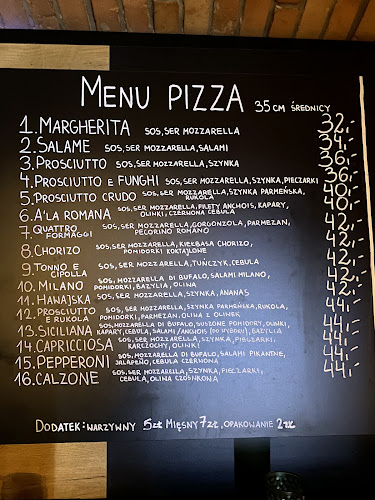 MENU PIZZA 35 CM ŚREDNICY
1. MARGHERITA SOS, SER MOZZARELLA 32,-
2. SALAME SOS, SER MOZZARELLA, SALAMI 34,-
3. PROSCIUTTO SOS, SER MOZZARELLA, SZYNKA 36,-
4. PROSCIUTTO E FUNGHI SOS, SER MOZZARELLA, SZYNKA, PIECZARKI 36,-
5. PROSCIUTTO CRUDO SOS, SER MOZZARELLA, SZYNKA PARMEŃSKA, 40,-
RUKOLA
6. A'LA ROMANA SOS, SER MOZZARELLA, FILETY ANCHOIS, KAPARY, 40,-
OLIWKI, CZERWONA CEBULA
7. QUATTRO FORMAGGI SOS, SER MOZZARELLA, GORGONZOLA, PARMEZAN, 42,-
PECORINO ROMANO
8. CHORIZO SOS, SER MOZZARELLA, KIEŁBASA CHORIZO, 42,-
POMIDORKI KOKTAJLOWE
9. TONNO E CIPOLLA SOS, SER MOZZARELLA, TUŃCZYK, CEBULA 42,-
10. MILANO SOS, MOZZARELLA DI BUFALO, SALAMI MILANO, 42,-
POMIDORKI, BAZYLIA, OLIWA
11. HAWAJSKA SOS, SER MOZZARELLA, SZYNKA, ANANAS 42,-
12. PROSCIUTTO E RUKOLA SOS, SER MOZZARELLA, SZYNKA PARMEŃSKA, RUKOLA, 44,-
POMIDORKI, PARMEZAN, OLIWA Z OLIWEK
13. SICILIANA SOS, MOZZARELLA DI BUFALO, SUSZONE POMIDORY, OLIWKI, 44,-
KAPARY, CEBULA, SALAMI / ANCHOIS (DO WYBORU), BAZYLIA
14. CAPRICCIOSA SOS, SER MOZZARELLA, SZYNKA, PIECZARKI, 44,-
KARCZOCHY, OLIWKI
15. PEPPERONI SOS, MOZZARELLA DI BUFALO, SALAMI PIKANTNE, 44,-
JALAPEÑO, CEBULA CZERWONA
16. CALZONE SOS, SER MOZZARELLA, SZYNKA, PIECZARKI, 44,-
CEBULA, OLIWA CZOSNKOWA
DODATEK: WARZYWNY 5zł MIĘSNY 7zł, OPAKOWANIE 2zł